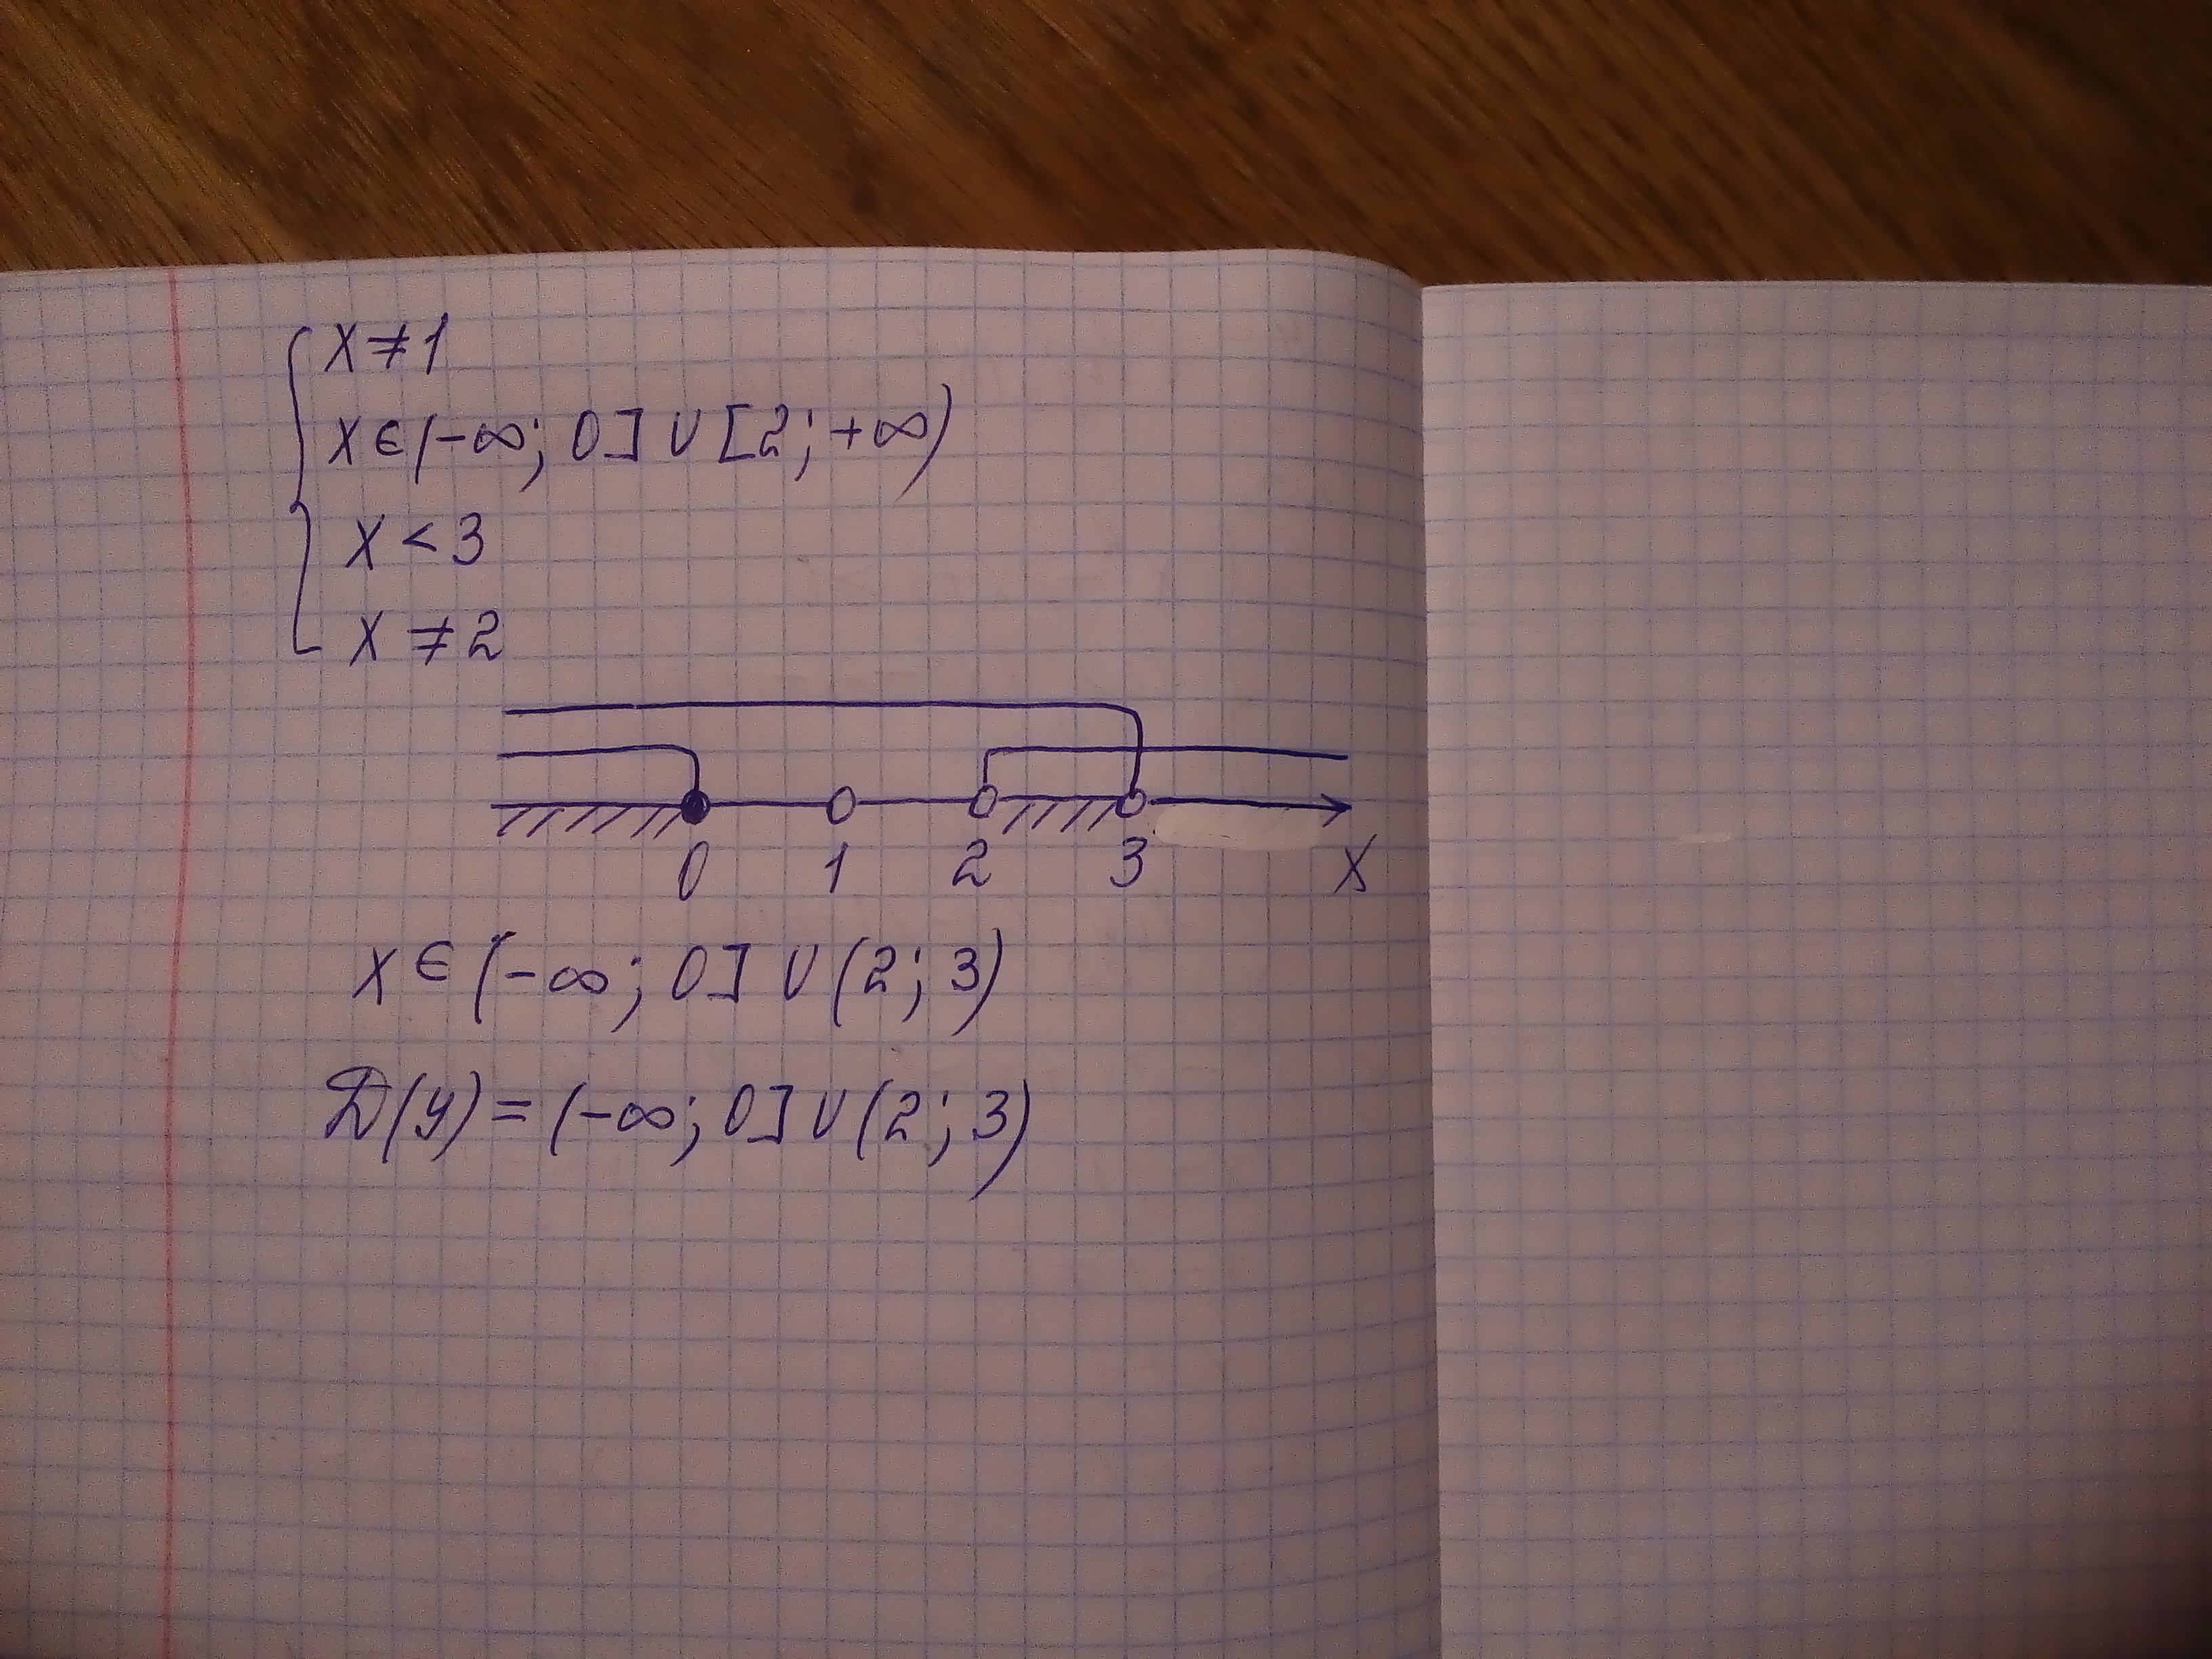 x ≠ 1
x ∈ (-∞; 0] ∪ [2; +∞)
x < 3
x ≠ 2
0 1 2 3 x
x ∈ (-∞; 0] ∪ (2; 3)
D(y) = (-∞; 0] ∪ (2; 3)